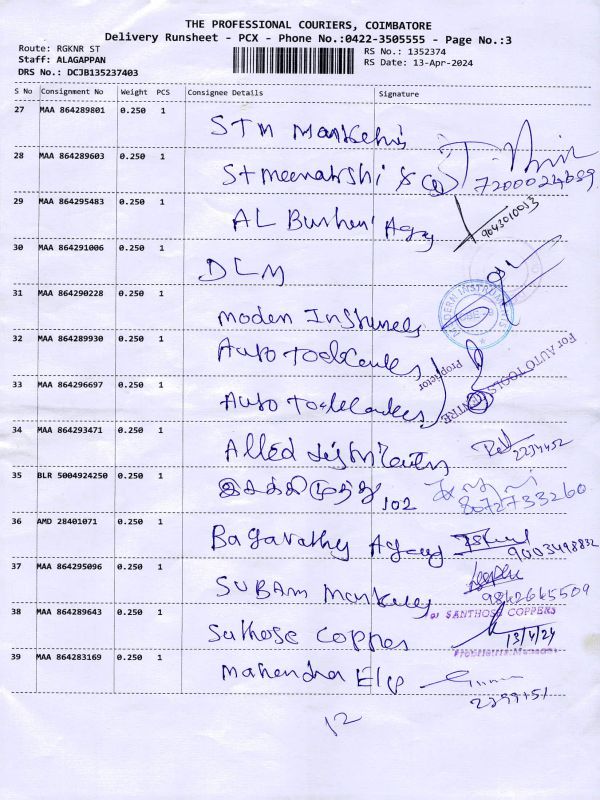 THE PROFESSIONAL COURIERS, COIMBATORE
Delivery Runsheet - PCX - Phone No.:0422-3505555 - Page No.:3
Route: RGKNR ST
RS No.: 1352374
Staff: ALAGAPPAN
RS Date: 13-Apr-2024
DRS No.: DCJB135237403
S No Consignment No Weight PCS Consignee Details Signature
27 MAA 864289801 0.250 1 STM
28 MAA 864289603 0.250 1 St meenakshi & Co
7200024689
29 MAA 864295483 0.250 1 AL
9043010013
30 MAA 864291006 0.250 1 DLM
31 MAA 864290228 0.250 1 modern
MODERN INSTRUMENTS
32 MAA 864289930 0.250 1 Auto
For AUTO TOOLS CENTRE
Proprietor
33 MAA 864296697 0.250 1 Auto
34 MAA 864293471 0.250 1 Allied
2234452
35 BLR 5004924250 0.250 1 இசக்கிமுத்து 102
8072733260
36 AMD 28401071 0.250 1 Bagavathy Agency
9003498832
37 MAA 864295096 0.250 1 SUBAM
9842645509
38 MAA 864289643 0.250 1 Suthose Coppes
For SANTHOSH COPPERS
13/4/24
39 MAA 864283169 0.250 1 Mahendra
12